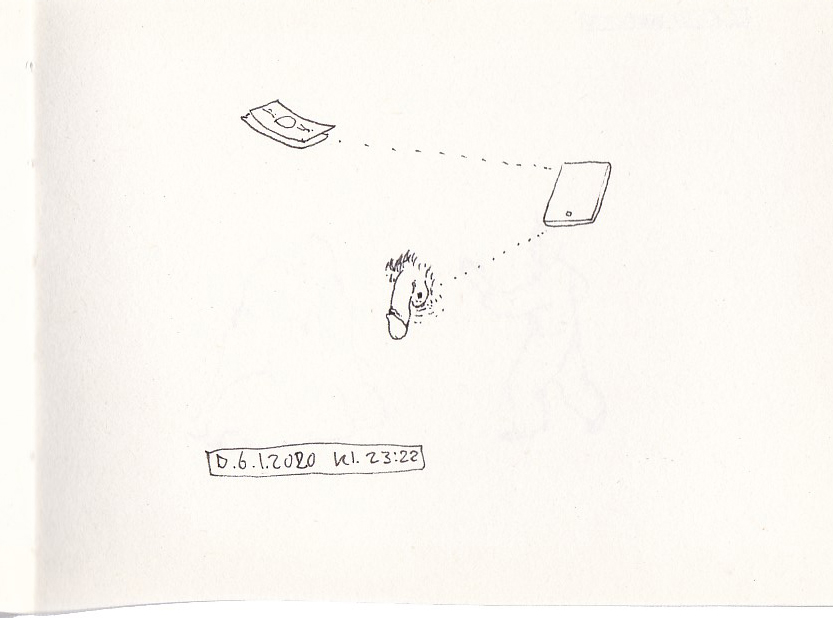 D.6.1.2020 Kl. 23:22